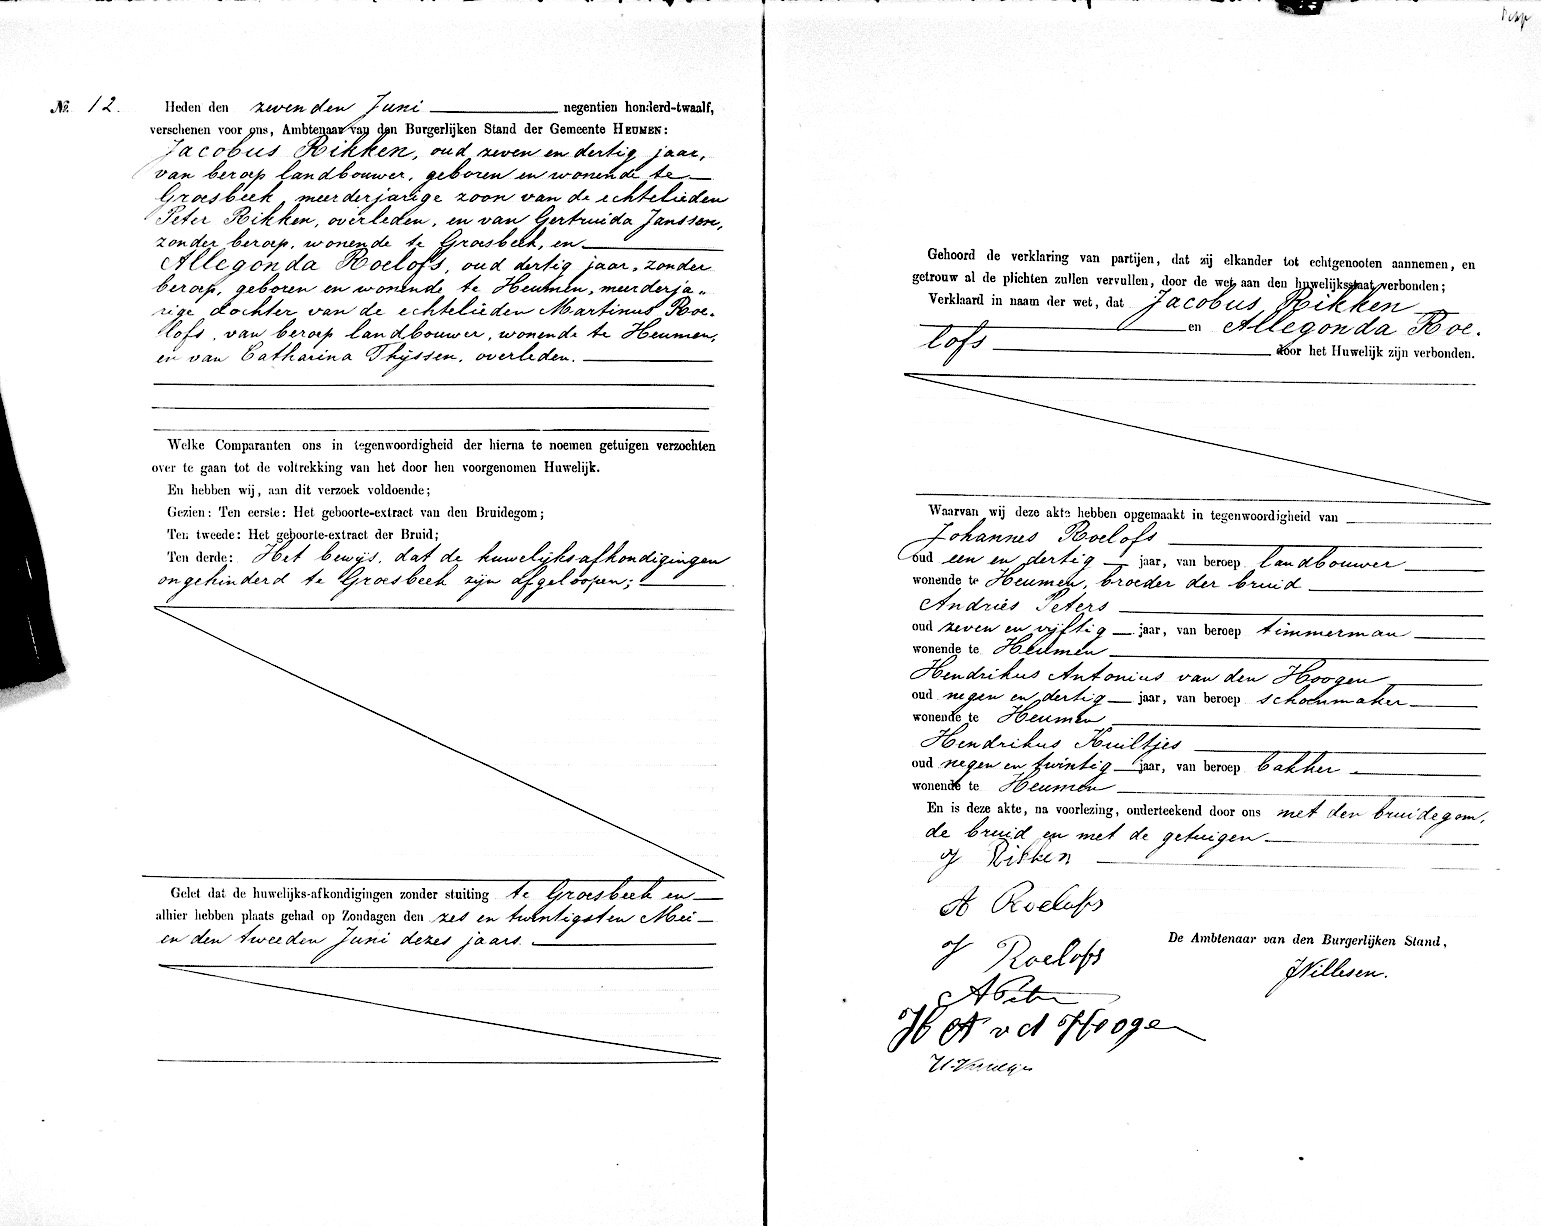 No. 12.
Heden den zevenden Juni negentien honderd-twaalf,
verschenen voor ons, Ambtenaar van den Burgerlijken Stand der Gemeente HEUMEN:
Jacobus Rikken, oud zeven en dertig jaar,
van beroep landbouwer, geboren en wonende te
Groesbeek meerderjarige zoon van de echtelieden
Peter Rikken, overleden, en van Gertruida Janssen,
zonder beroep, wonende te Groesbeek, en
Allegonda Roelofs, oud dertig jaar, zonder
beroep, geboren en wonende te Heumen, meerderja„
rige dochter van de echtelieden Martinus Roe.
lofs, van beroep landbouwer, wonende te Heumen,
en van Catharina Thijssen, overleden.
Welke Comparanten ons in tegenwoordigheid der hierna te noemen getuigen verzochten
over te gaan tot de voltrekking van het door hen voorgenomen Huwelijk.
En hebben wij, aan dit verzoek voldoende;
Gezien: Ten eerste: Het geboorte-extract van den Bruidegom;
Ten tweede: Het geboorte-extract der Bruid;
Ten derde: Het bewijs, dat de huwelijks-afkondigingen
ongehinderd te Groesbeek zijn afgeloopen;
Gelet dat de huwelijks-afkondigingen zonder stuiting te Groesbeek en
alhier hebben plaats gehad op Zondagen den zes en twintigsten Mei
en den tweeden Juni dezes jaars.
Gehoord de verklaring van partijen, dat zij elkander tot echtgenooten aannemen, en
getrouw al de plichten zullen vervullen, door de wet aan den huwelijksstaat verbonden;
Verklaard in naam der wet, dat Jacobus Rikken
en Allegonda Roe.
lofs door het Huwelijk zijn verbonden.
Waarvan wij deze akte hebben opgemaakt in tegenwoordigheid van
Johannes Roelofs
oud een en dertig jaar, van beroep landbouwer
wonende te Heumen, broeder der bruid
Andries Peters
oud zeven en vijftig jaar, van beroep timmerman
wonende te Heumen
Hendrikus Antonius van den Hoogen
oud negen en dertig jaar, van beroep schoenmaker
wonende te Heumen
Hendrikus Kuiltjes
oud negen en twintig jaar, van beroep bakker
wonende te Heumen
En is deze akte, na voorlezing, onderteekend door ons met den bruidegom,
de bruid en met de getuigen
J Rikken
A Roelofs
J Roelofs
De Ambtenaar van den Burgerlijken Stand,
JWillesen.
A Peters
H A v d Hoogen